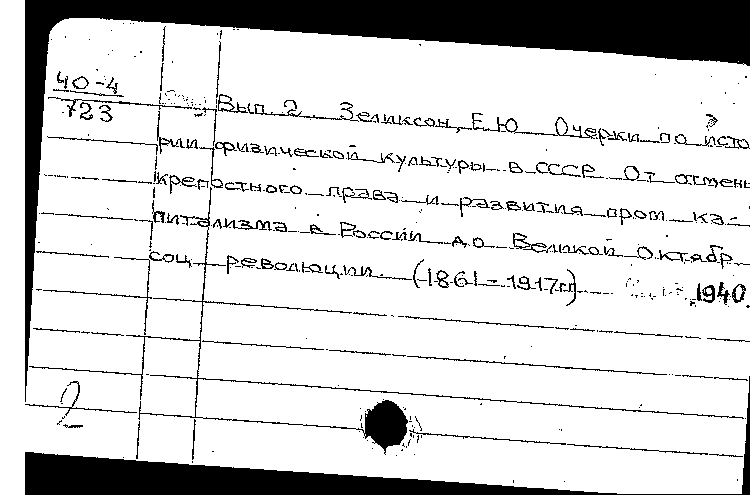 40-4
723
Вып. 2. Зеликсон, Е.Ю. Очерки по исто
рии физической культуры в СССР. От отмены
крепостного права и развития пром. ка-
питализма в России до Великой Октябр.
соц. революции. (1861-1917гг) 1940.
2